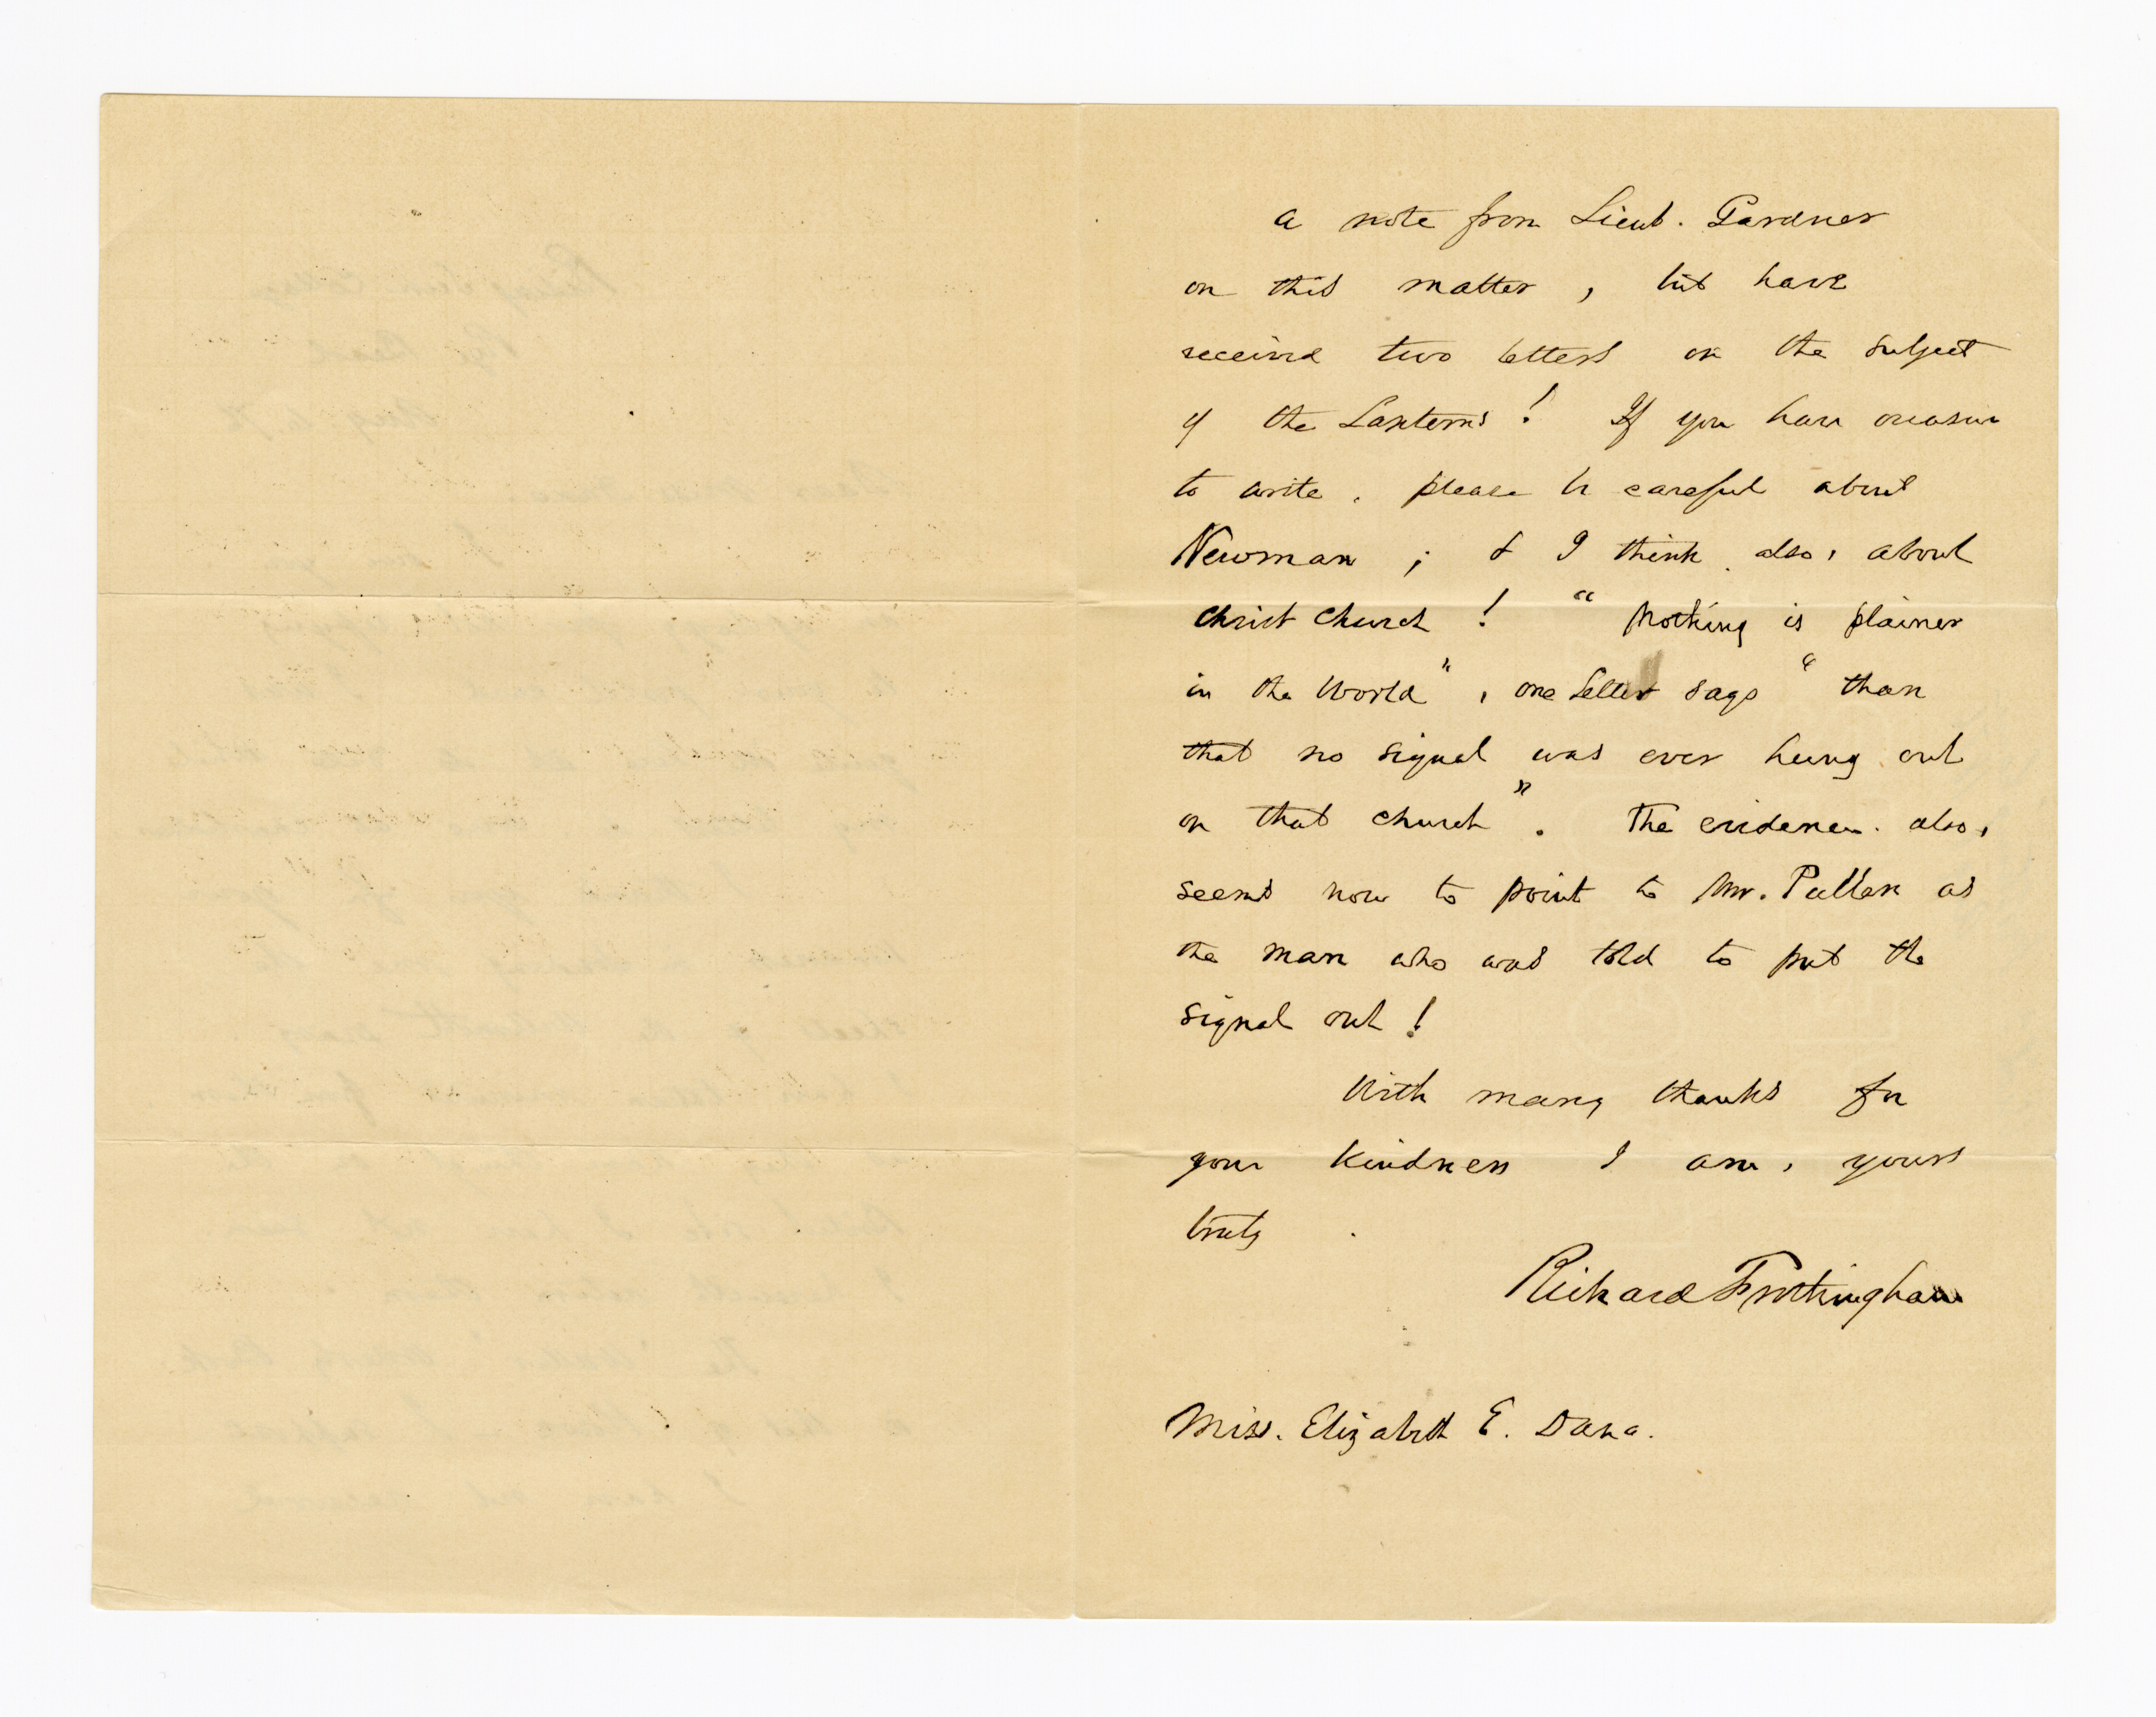 a note from Lieut. Gardner
on this matter, but have
received two letters on the subject
of the Lanterns! If you have occasion
to write, please be careful about
Newman; & I think, also, about
Christ Church! "Nothing is plainer
in the World", one letter says "than
that no signal was ever hung out
on that church". The evidence, also,
seems now to point to Mr. Pullen as
the man who was told to put the
signal out!
With many thanks for
your kindness I am, yours
truly.
Richard Frothingham
Miss. Elizabeth E. Dana.